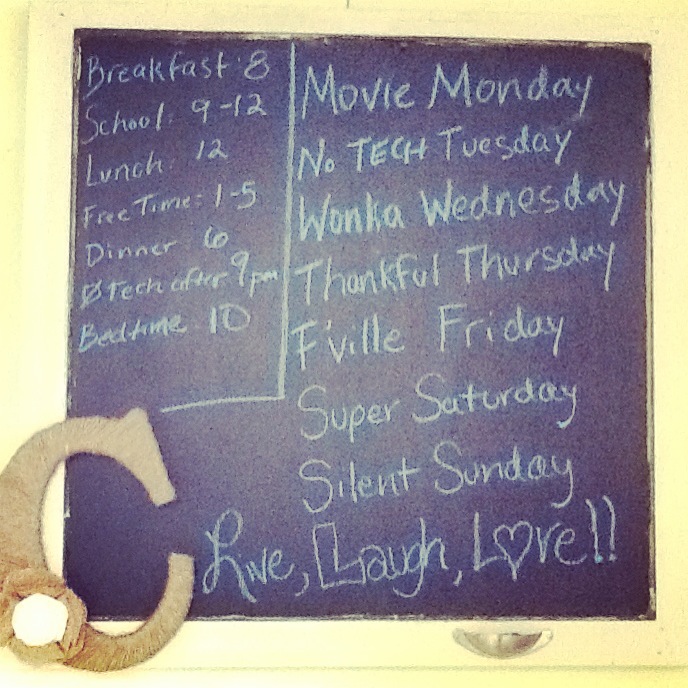 Breakfast: 8
School: 9-12
Lunch: 12
Free Time: 1-5
Dinner 6
Ø Tech after 9pm
Bedtime: 10
Movie Monday
No TECH Tuesday
Wonka Wednesday
Thankful Thursday
F'ville Friday
Super Saturday
Silent Sunday
Live, Laugh, L♡ve!!
C